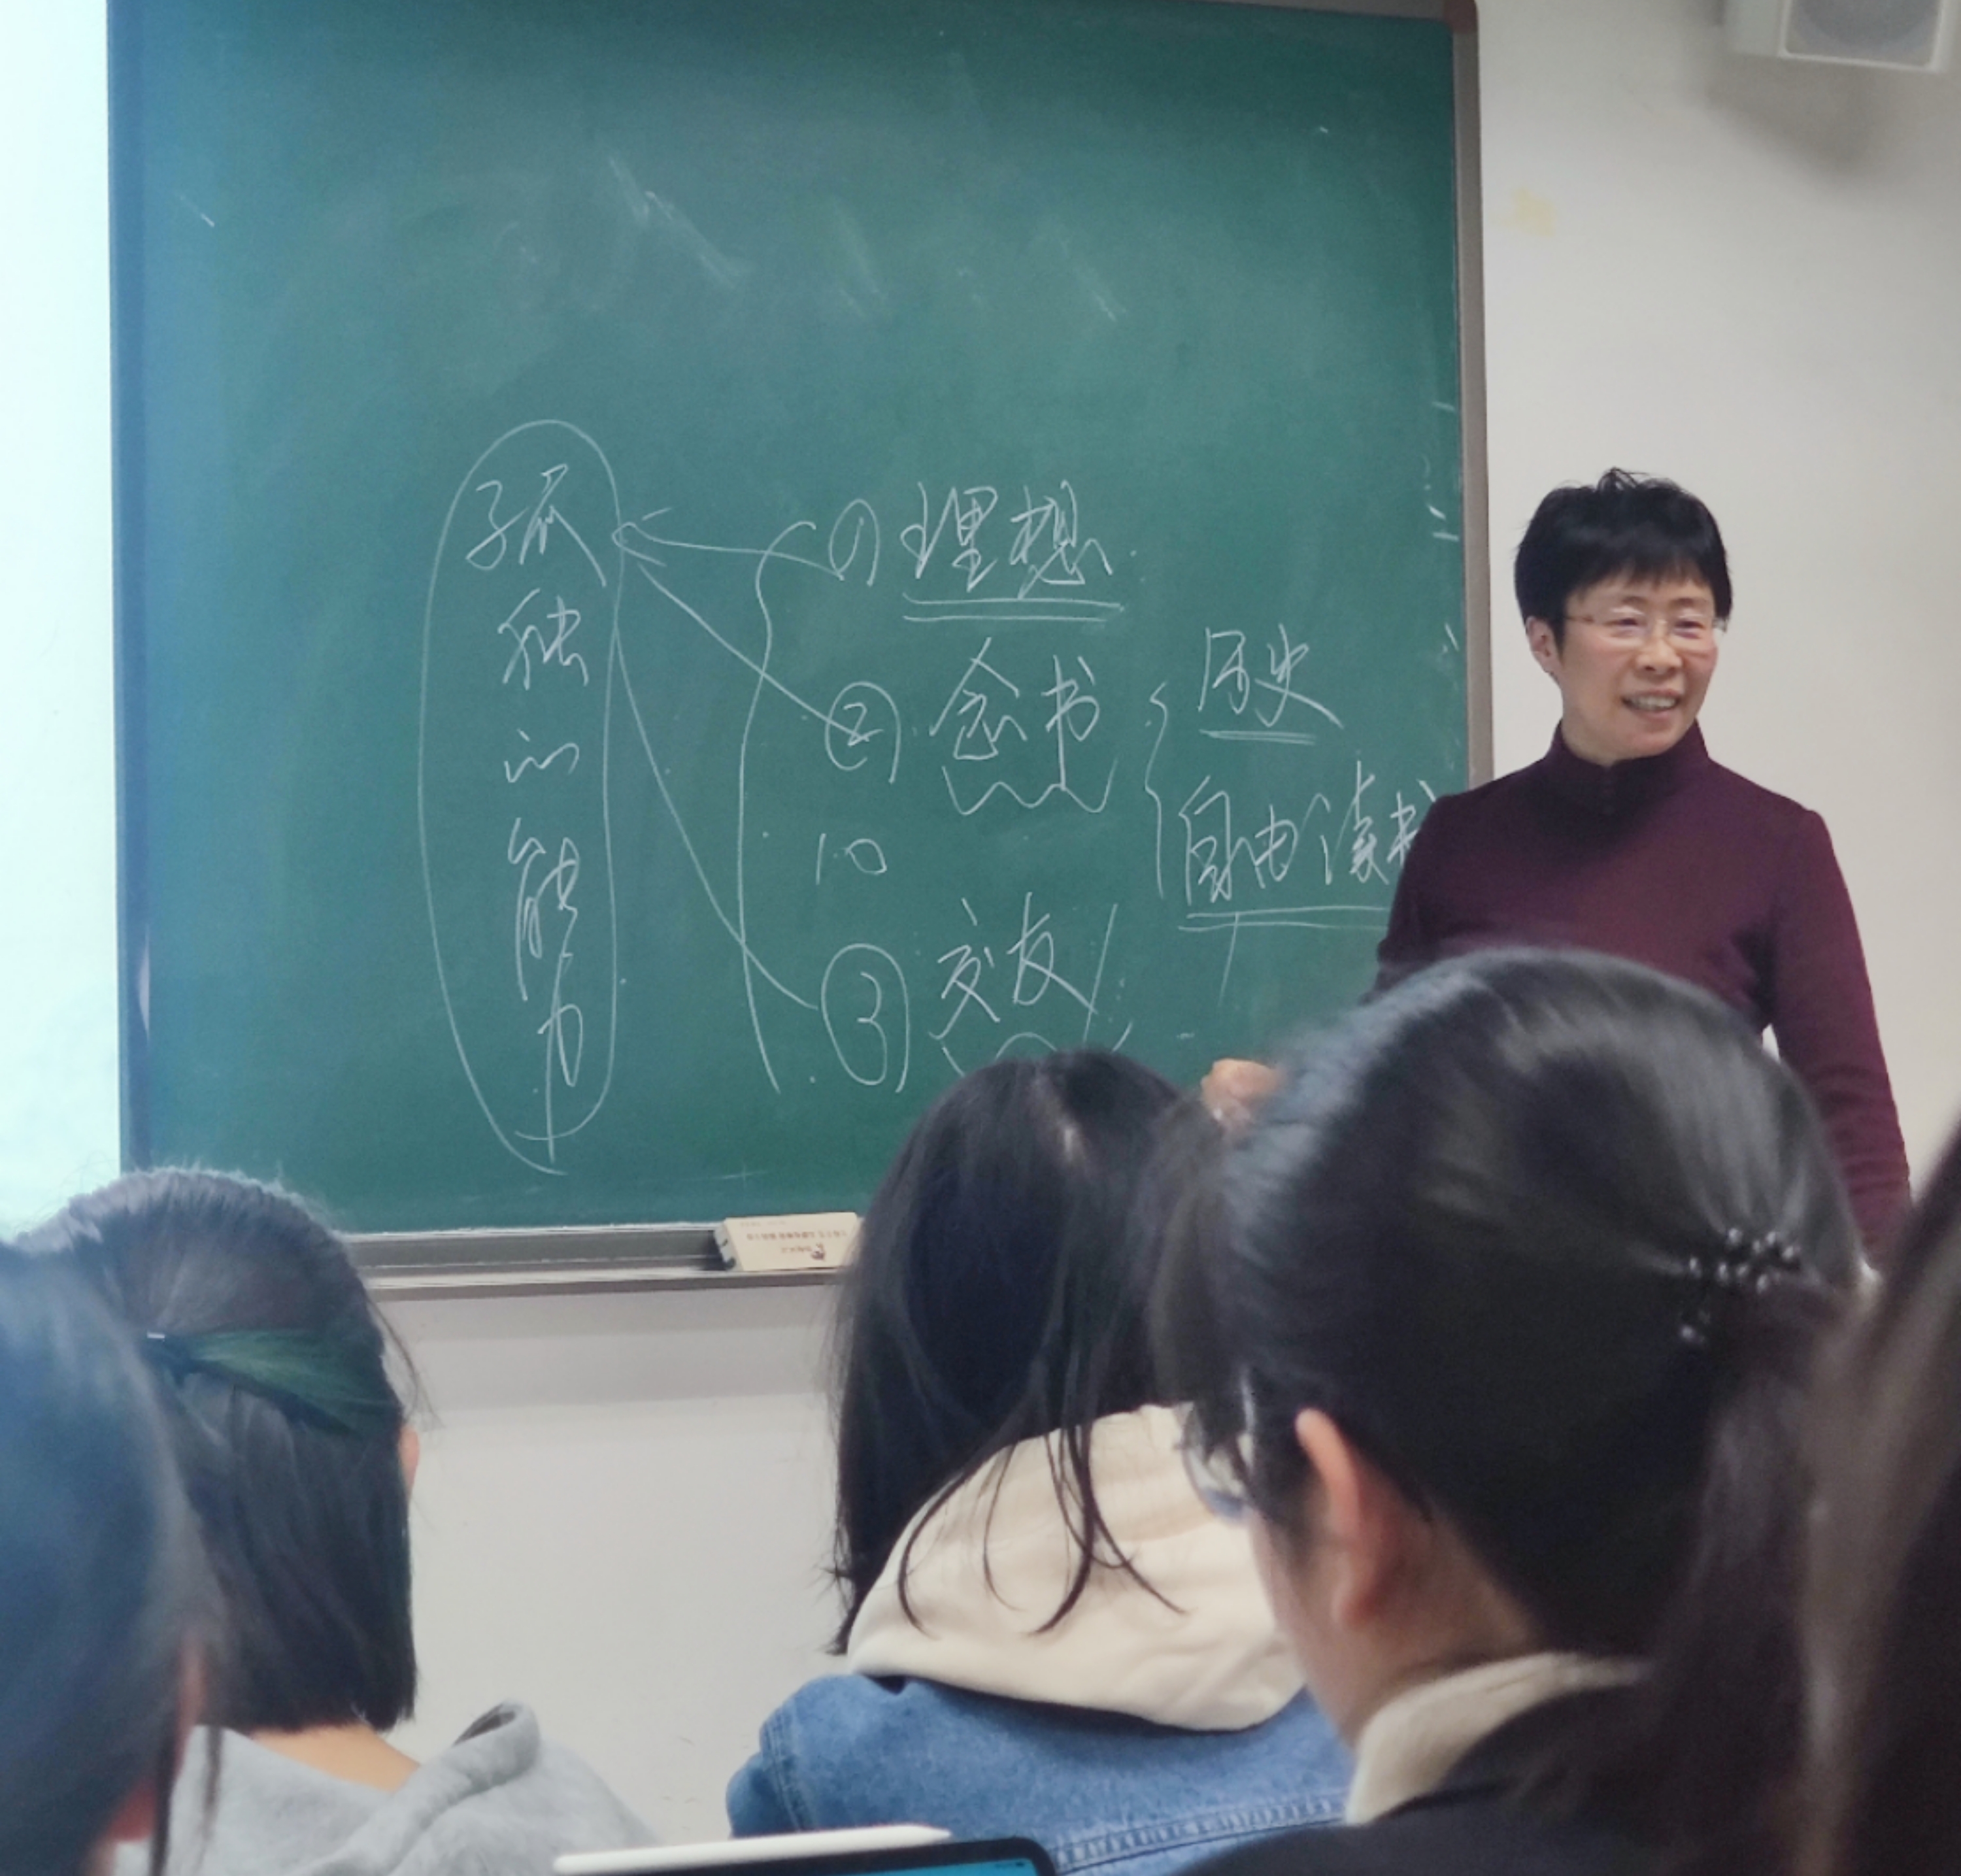 孤独的能力
① 理想
② 念书
历史
自由读书
10
③ 交友